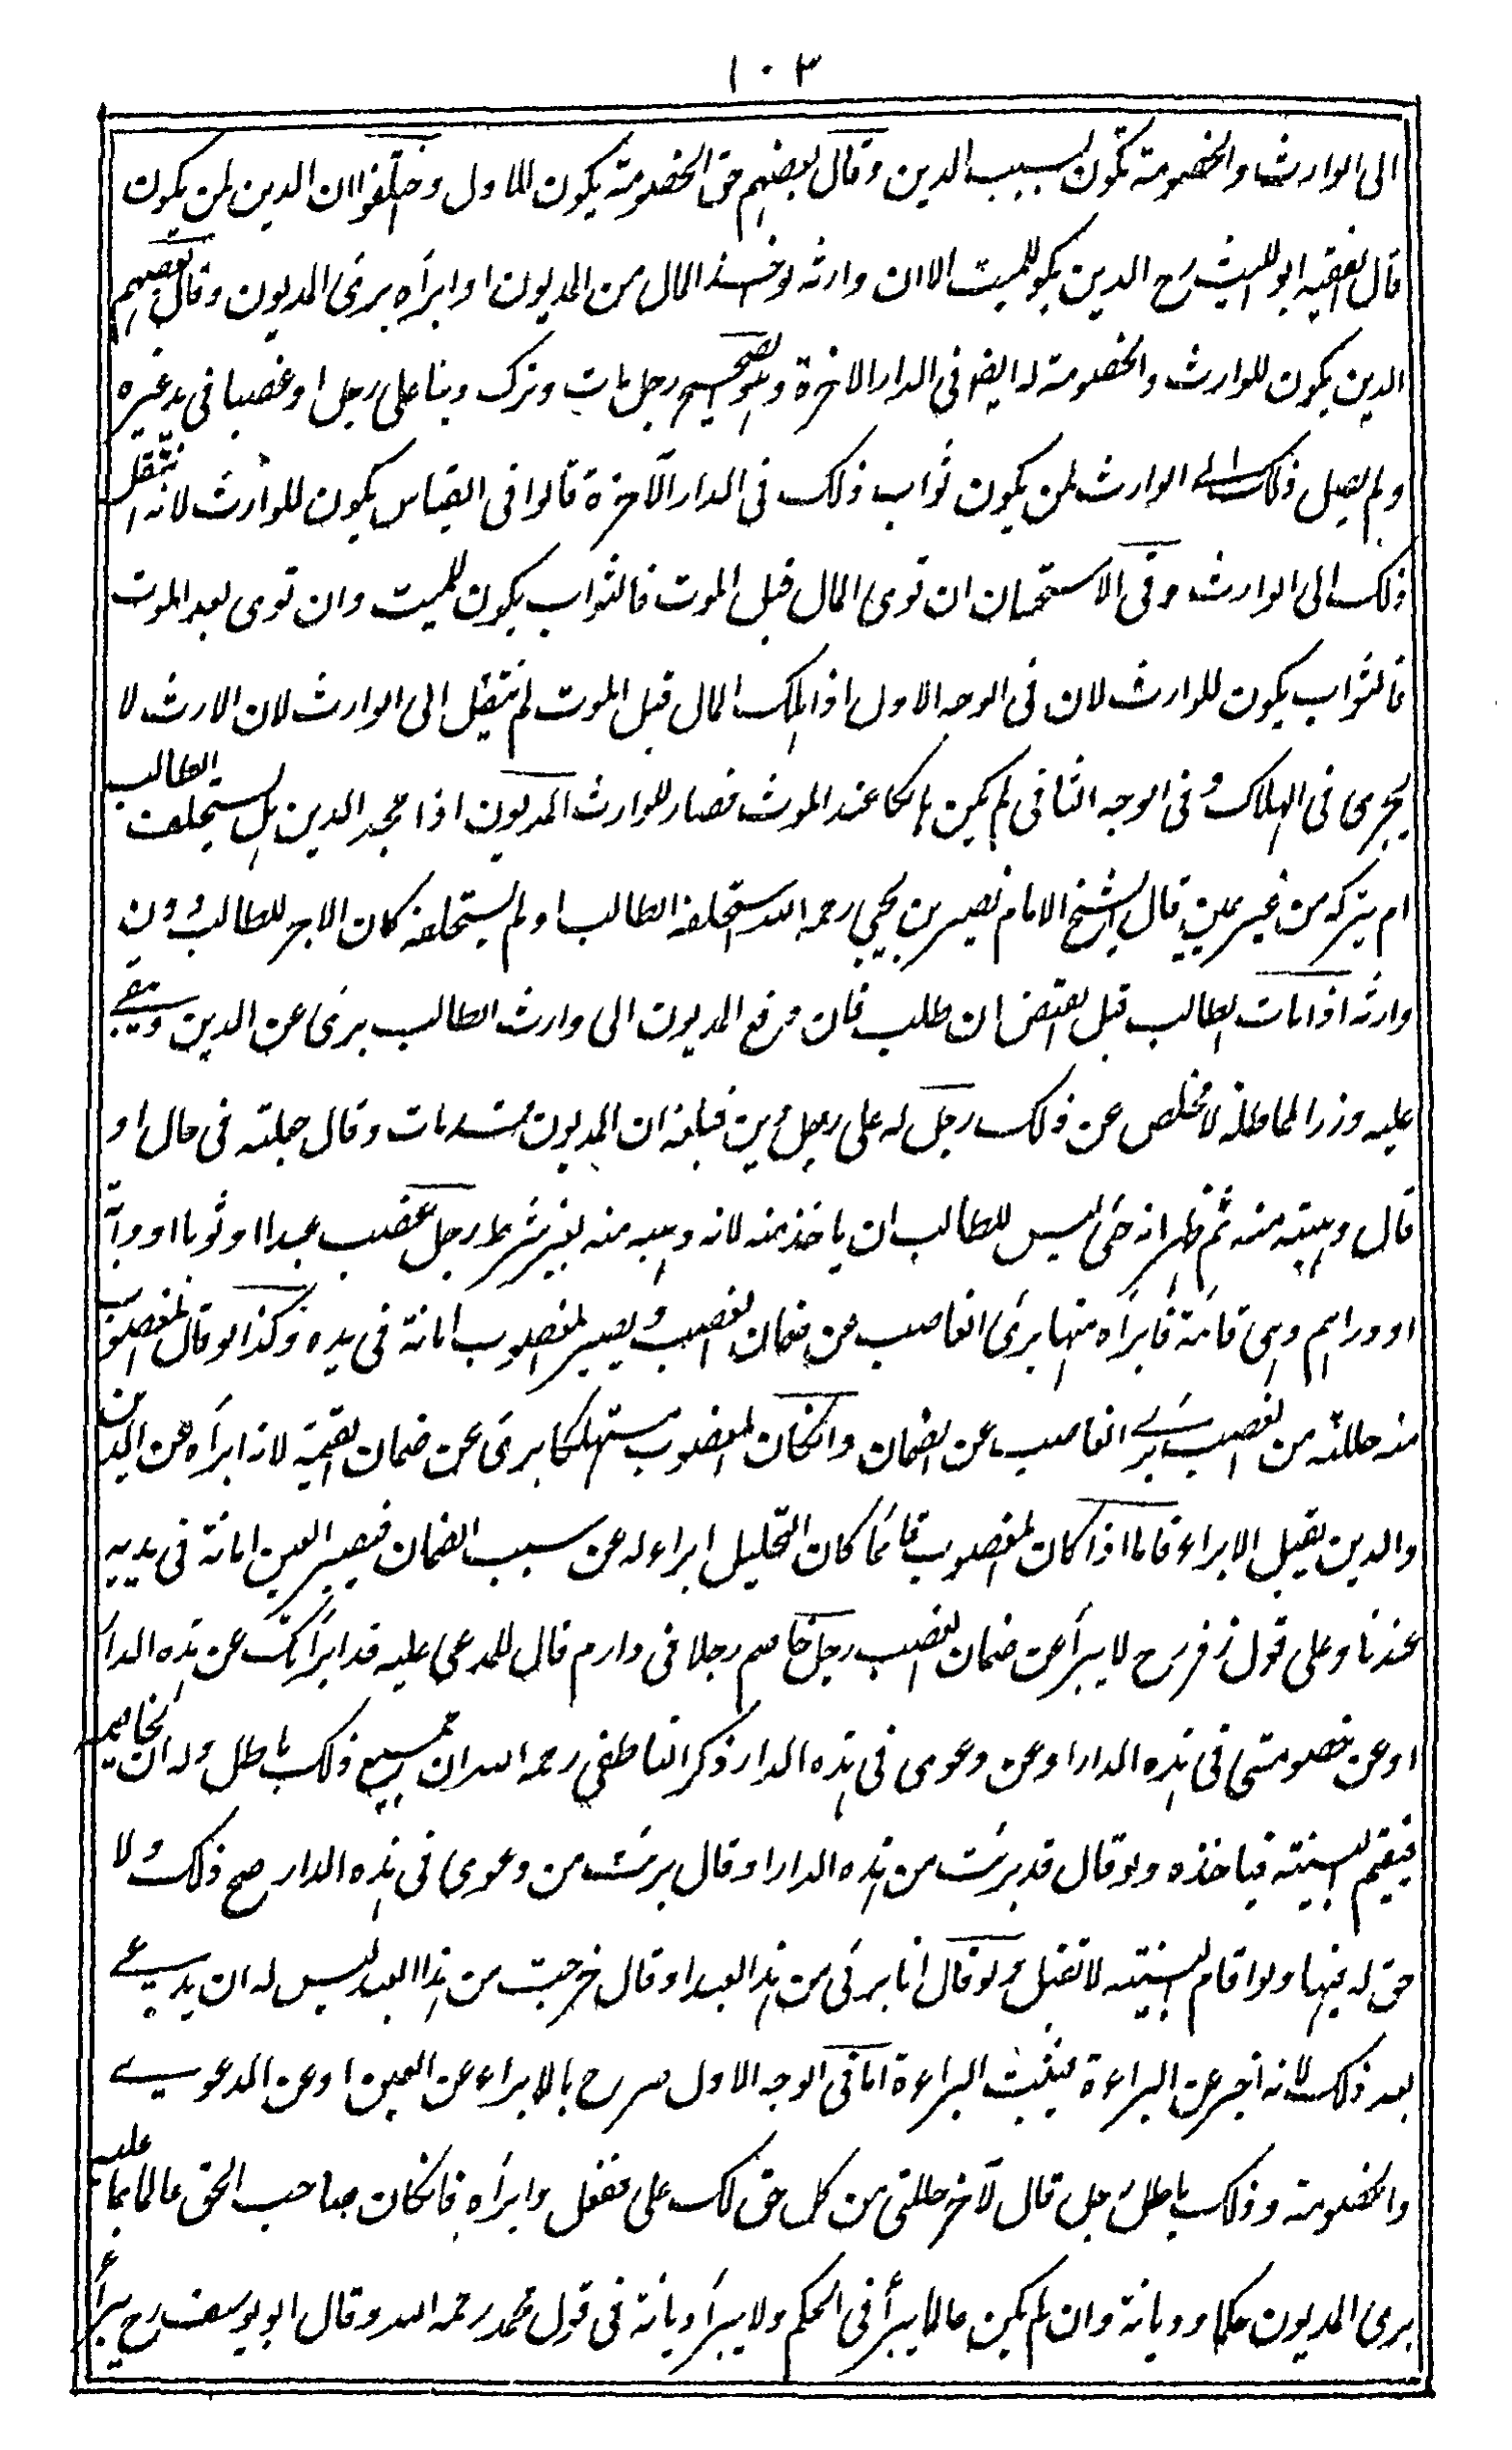 ١٠٣
الى الوارث والخصومة تكون لسبب الدين وقال بعضهم حق الخصومة يكون للاول واختلفوا ان الدين لمن يكون
قال الفقيه ابو الليث رح الدين يكون للميت الا ان وارثه لو اخذ المال من المديون او ابرأه برئ المديون وقال بعضهم
الدين يكون للوارث والخصومة له ايضا فى الدار الاخرة وهو الصحيح رجل مات وترك دينا على رجل او غصبا فى يد غيره
ولم يصل ذلك الى الوارث لمن يكون ثواب ذلك فى الدار الآخرة قالوا فى القياس يكون للوارث لانه انتقل
ذلك الى الوارث وفى الاستحسان ان توى المال قبل الموت فالثواب يكون للميت وان توى بعد الموت
فالثواب يكون للوارث لان فى الوجه الاول اذا هلك المال قبل الموت لم ينتقل الى الوارث لان الارث لا
يجرى فى الهلاك وفى الوجه الثانى لم يكن هالكا عند الموت فصار للوارث المديون اذا جحد الدين هل يستحلف الطالب
ام يتركه من غير يمين قال الشيخ الامام نصير بن يحيى رحمه الله استحلفه الطالب او لم يستحلفه كان الاجر للطالب دون
وارثه اذا مات الطالب قبل القبض ان طلب فان دفع المديون الى وارث الطالب برئ عن الدين ويبقى
عليه وزر المماطلة لا مخلص عن ذلك رجل له على رجل دين فبلغه ان المديون قد مات وقال جعلته فى حال او
قال وهبته منه ثم ظهر انه حى ليس للطالب ان ياخذ منه لانه وهبه منه بغير شرط رجل غصب عبدا او ثوبا او دابة
او دراهم وهى قائمة فابرأه منها برئ الغاصب عن ضمان الغصب ويصير المغصوب امانة فى يده وكذا لو قال المغصوب
منه حللته من الغصب برئ الغاصب عن الضمان وان كان المغصوب مستهلكا برئ عن ضمان القيمة لانه ابرأه عن الدين
والدين يقبل الابراء فاما اذا كان المغصوب قائما كان التحليل ابراء له عن سبب الضمان فيصير العين امانة فى يديه
عندنا وعلى قول زفر رح لا يبرأ عن ضمان الغصب رجل خاصم رجلا فى دار ثم قال للمدعى عليه قد ابرأتك عن هذه الدار
او عن خصومتى فى هذه الدار او عن دعوى فى هذه الدار ذكر الناطفى رحمه الله ان جميع ذلك باطل وله ان يخاصمه
فيقيم البينة فياخذه ولو قال قد برئت من هذه الدار او قال برئت من دعوى فى هذه الدار صح ذلك ولا
حق له فيها ولو اقام البينة لا تقبل ولو قال انا برئ من هذا العبد او قال خرجت من هذا العبد ليس له ان يدعى
بعد ذلك لانه اخبر عن البراءة فيثبت البراءة اما فى الوجه الاول صرح بالابراء عن العين او عن الدعوى
والخصومة وذلك باطل رجل قال لآخر حللنى من كل حق لك على ففعل وابرأه فان كان صاحب الحق عالما بما عليه
برئ المديون حكما وديانة وان لم يكن عالما يبرأ فى الحكم ولا يبرأ ديانة فى قول محمد رحمه الله وقال ابو يوسف رح يبرأ